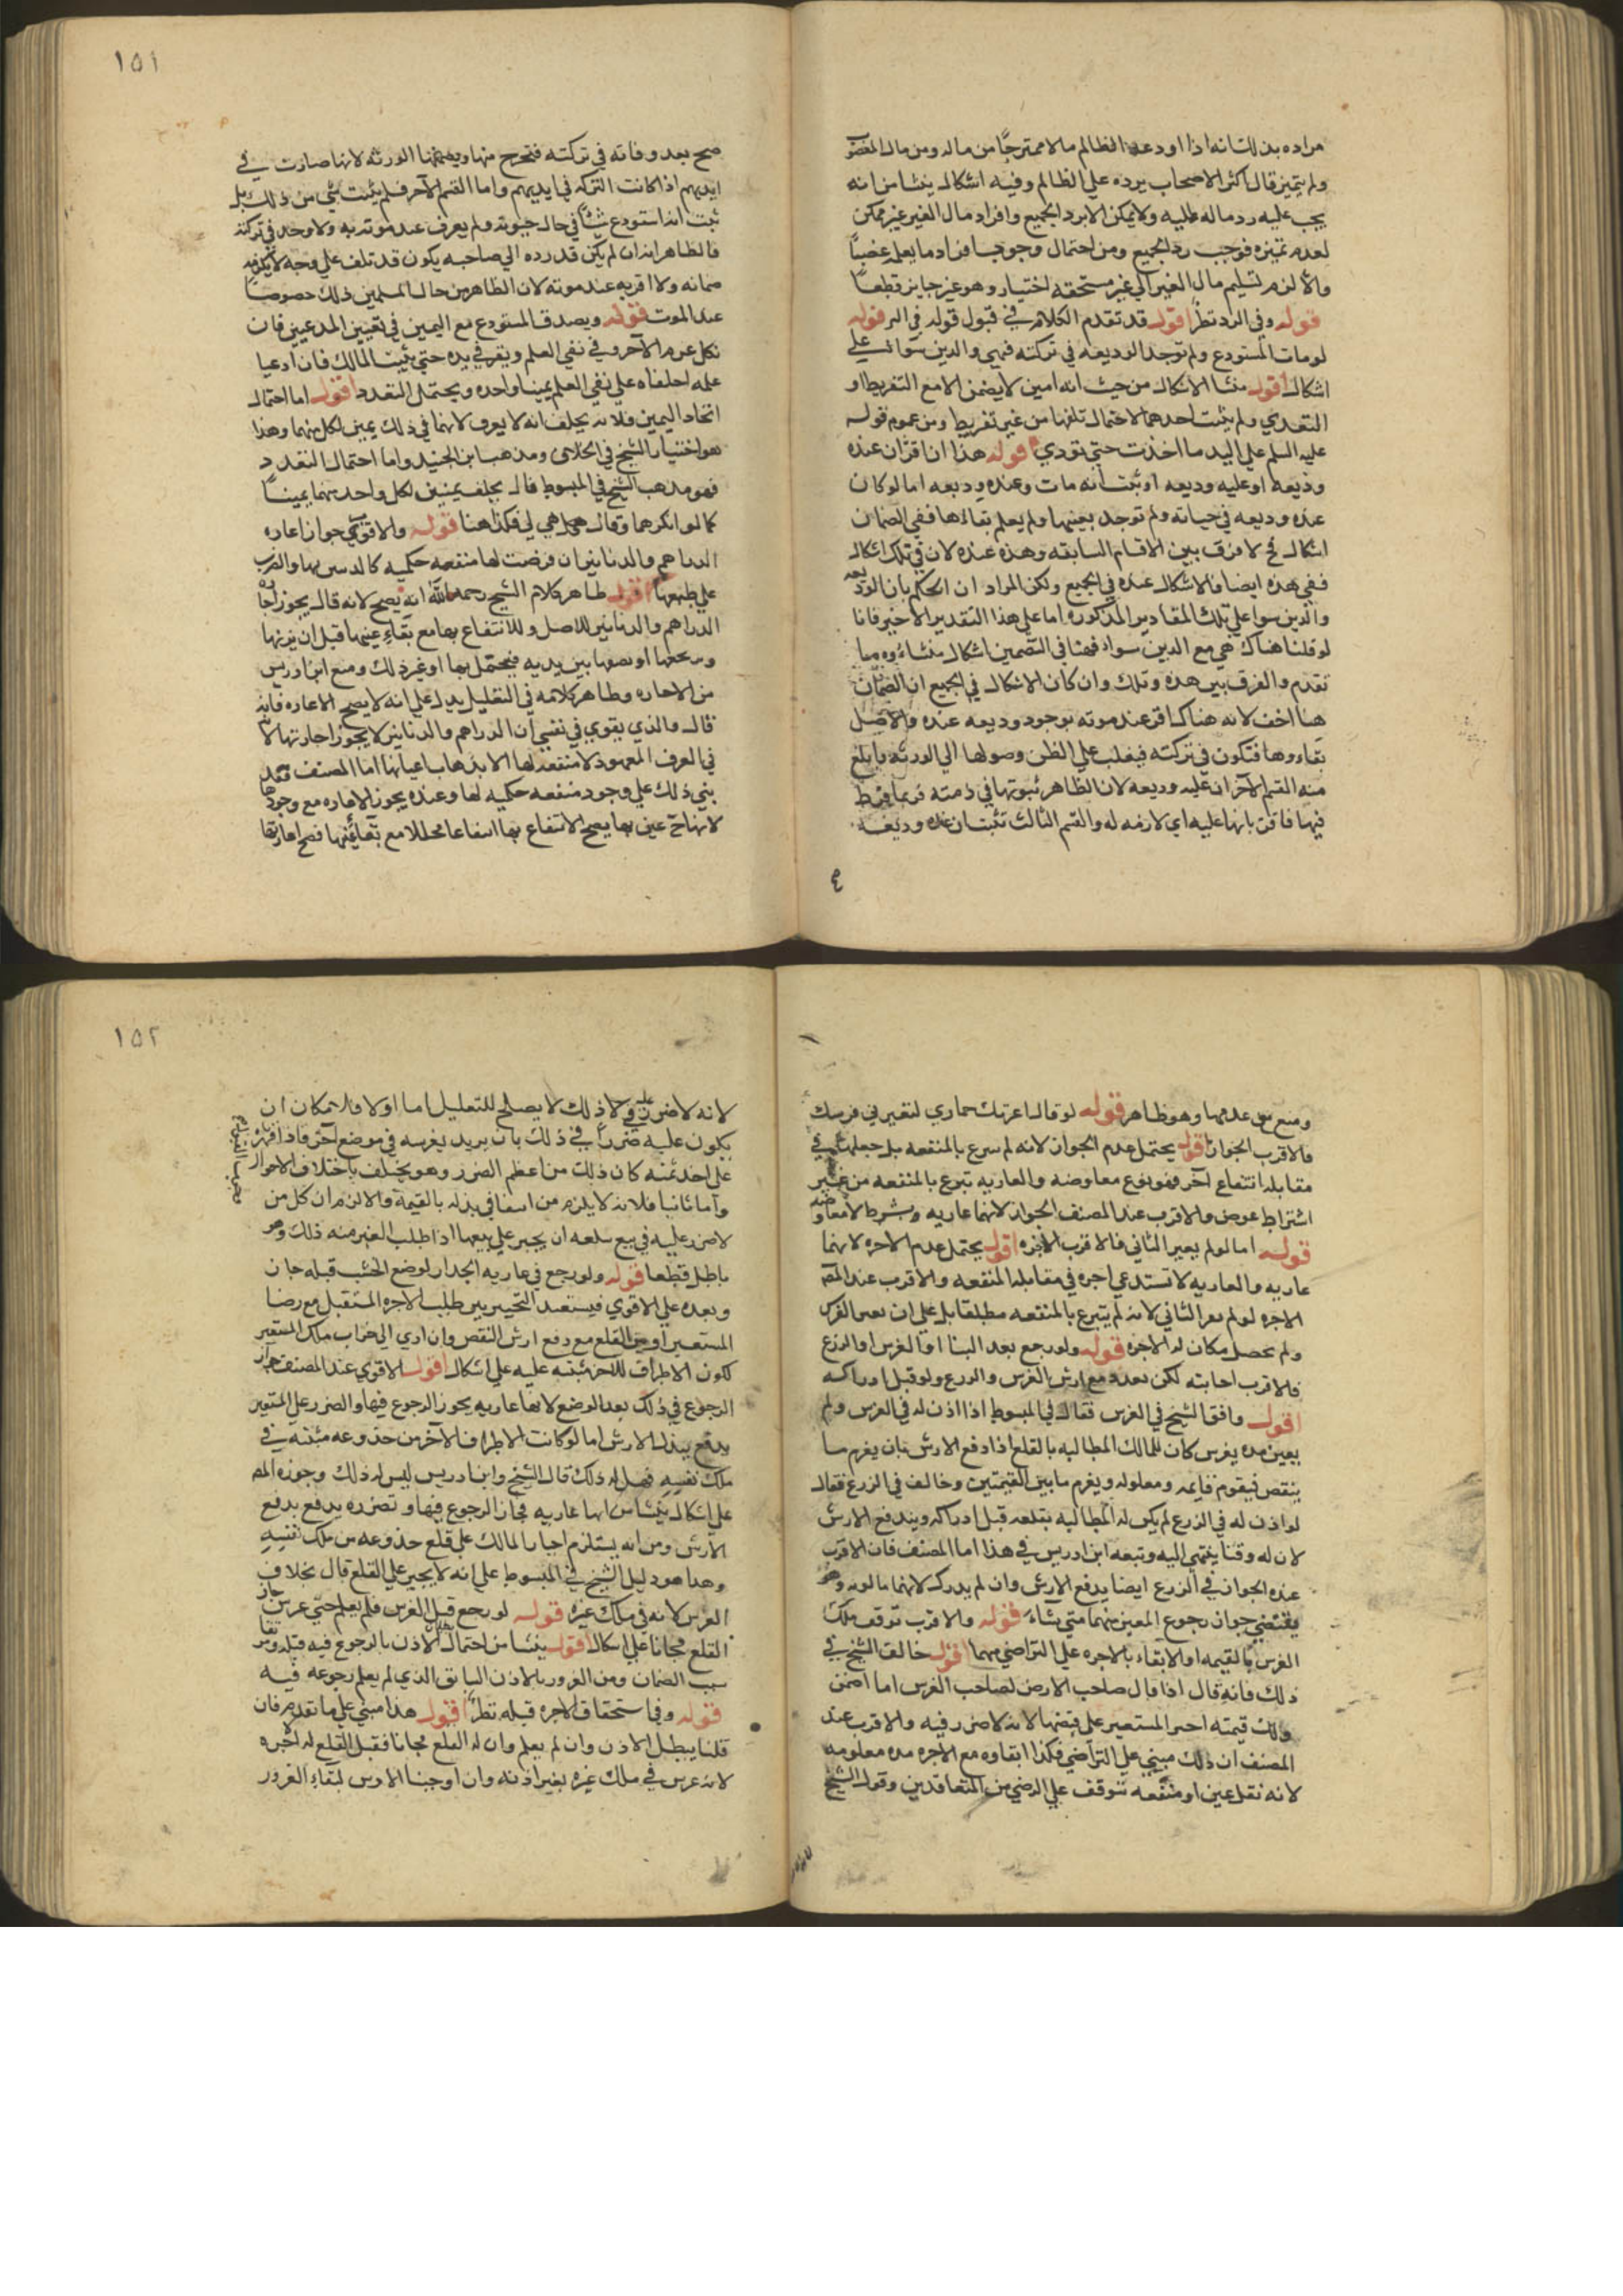 مراده بذلك انه اذا اودعه الظالم مالا ممتزجًا من ماله ومن مال المغصوب
ولم يتميز قال اكثر الاصحاب يرده علي الظالم وفيه اشكال ينشا من انه
يجب عليه رد ماله عليه ولا يمكن الا برد الجميع وافراد مال الغير غير ممكن
لعدم تميزه فوجب رد الجميع ومن احتمال وجوب افراد ما يعلم غصبًا
والا لزم تسليم مال الغير الي غير مستحقه اختيار وهو غير جايز قطعًا
قوله وفي الرد نظر اقول قد تقدم الكلام في قبول قوله في الر قوله
لو مات المستودع ولم توجد الوديعه في تركته فهي والدين سوا علي
اشكال اقول منشا الاشكال من حيث انه امين لا يضمن الا مع التفريط او
التعدي ولم يثبت احدهما لاحتمال تلفها من غير تفريط ومن عموم قوله
عليه السلم علي اليد ما اخذت حتي تودي قوله هذا ان اقر ان عنده
وديعه او عليه وديعه او ثبت انه مات وعنده وديعه اما لو كان
عنده وديعه في حياته ولم توجد بعينها ولم يعلم بقاءها ففي الضمان
اشكال لا فرق بين الاقسام السابقه وهذه عنده لان في تلك اشكال
ففي هذه ايضا فالاشكال عنده في الجميع ولكن المراد ان الحكم بان الوديعه
والدين سوا علي تلك المقادير المذكوره اما علي هذا التقدير الاخير فانا
لو قلنا هناك هي مع الدين سواء فهنا في التضمين اشكال منشاءوه ما
تقدم والفرق بين هذه وتلك وان كان الاشكال في الجميع ان الضمان
هنا اخف لانه هناك اقر عند موته بوجود وديعه عنده والاصل
بقاءوها فتكون في تركته فيغلب علي الظن وصولها الي الورثه وابلغ
منه القسم الآخر ان عليه وديعه لان الظاهر ثبوتها في ذمته فربما فرط
فيها فاقر بانها عليه اي لازمه له والقسم الثالث تثبت ان عنده وديعه
١٥١
صح بعد وفاته في تركته فتخرج منها ويضمنها الورثه لانها صارت في
ايديهم اذا كانت التركه في ايديهم واما القسم الآخر فلم يثبت شي من ذلك بل
ثبت انه استودع شيًا في حال حيوته ولم يعرف عند موته به ولا وجد في تركته
فالظاهر انه ان لم يكن قد رده الي صاحبه يكون قد تلف علي وجه لا يلزمه
ضمانه ولا اقر به عند موته لان الظاهر من حال المسلمين ذلك خصوصًا
عند الموت قوله ويصدق المستودع مع اليمين في تعيين المدعيين فان
نكل غرم الآخر وفي نفي العلم ويقر في يده حتي يثبت المالك فان ادعيا
علمه احلفناه علي نفي العلم يمينا واحده ويحتمل التعدد اقول اما احتمال
اتحاد اليمين فلانه يحلف انه لا يعرف لانهما في ذلك يمين لكل منهما وهذا
هو اختيار الشيخ في الخلاف ومذهب ابن الجنيد واما احتمال التعدد
فهو مذهب الشيخ في المبسوط قال يحلف يمينين لكل واحد منهما يمينًا
كما لو انكرهما وقال هي لي فكذا هنا قوله والاقوي جواز اعاره
الدراهم والدنانير ان فرضت لها منفعه حكميه كالتزيين بها والضرب
علي طبعها اقول ظاهر كلام الشيخ رحمه الله انه يصح لانه قال يجوز اجاره
الدراهم والدنانير للاصل وللانتفاع بها مع بقاء عينها قبل ان يزنها
او يضعها بين يديه فيجتمل بها او غير ذلك ومنع ابن ادريس
من الاعاره وظاهر كلامه في التعليل يدل علي انه لا يصح الاعاره فانه
قال والذي يقوي في نفسي ان الدراهم والدنانير لا يجوز اجارتها لا
في العرف المعهود لا منفعه لها الا بذهاب اعيانها اما المصنف فقد
بني ذلك علي وجود منفعه حكميه لها وعنده يجوز الاعاره مع وجودها
لانها عين بها يصح الانتفاع بها انتفاعا محللا مع بقاء عينها فصح اعارتها
ومنع من عدمها وهو ظاهر قوله لو قال اعرتك حماري لتعيرني فرسك
فالاقرب الجواز اقول يحتمل عدم الجواز لانه لم يتبرع بالمنفعه بل جعلها في
مقابله انتفاع آخر فهو نوع معاوضه والعاريه تبرع بالمنفعه من غير
اشتراط عوض والاقرب عند المصنف الجواز لانهما عاريه وشرط لا معاوضه
قوله اما لو لم يعير الثاني فالاقرب الاجره اقول يحتمل عدم الاجره لانها
عاريه والعاريه لا تستدعي اجره في مقابله المنفعه والاقرب عند المصنف
الاجره لو لم يعر الثاني لانه لم يتبرع بالمنفعه مطلقا بل علي ان يعير الفرس
ولم يحصل مكان له الاجره قوله ولو رجع بعد البنا او الغرس او الزرع
فالاقرب اجابته لكن بعد دفع ارش الغرس والزرع ولو قبل ادراكه
اقول وافق الشيخ في الغرس فقال في المبسوط اذا اذن له في الغرس ولم
يعين مده يغرس كان للمالك المطالبه بالقلع اذا دفع الارش بان يغرم ما
ينقص فيقوم قايمه ومقلوعه ويغرم ما بين القيمتين وخالف في الزرع فقال
لو اذن له في الزرع لم يكن له المطالبه بقلعه قبل ادراكه ويدفع الارش
لان له وقتا ينتهي اليه وتبعه ابن ادريس في هذا اما المصنف فان الاقرب
عنده الجواز في الزرع ايضا يدفع الارش وان لم يدرك لانها عاريه وهو
يقتضي جواز رجوع المعير فيها متي شاء قوله والاقرب توقف ملك
الغرس بالقيمه او الابقاء بالاجره علي التراضي منهما اقول خالف الشيخ في
ذلك فانه قال اذا قال صاحب الارض لصاحب الغرس انا اضمن
ولك قيمته اجبر المستعير علي قبضها لانه لا ضرر فيه والاقرب عند
المصنف ان ذلك مبني علي التراضي فكذا ابقاوه مع الاجره مده معلومه
لانه نقل عين او منفعه تتوقف علي الرضي من المتعاقدين وقول الشيخ
١٥٢
لانه لا ضرر عليه في ذلك لا يصلح للتعليل اما اولا فلامكان ان
يكون عليه ضررًا في ذلك بان يريد يغرسه في موضع آخر فاذا اقهر
علي اخذ ثمنه كان ذلك من اعظم الضرر وهو يختلف باختلاف الاحوال
واما ثانيا فلانه لا يلزم من انتفا في بذله بالقيمة والا لزم ان كل من
لا ضرر عليه في بيع سلعه ان يجبر علي بيعها اذا طلب الغير منه ذلك وهو
باطل قطعا قوله ولو رجع في عاريه الجدار لوضع الخشب قبله جاز
وبعده علي الاقوي فيستفيد التخيير بين طلب الاجره المستقبل مع رضا
المستعير او بين القلع مع دفع ارش النقص وان ادي الي خراب ملك المستعير
لكون الاطراف للآخر مثبته عليه علي اشكال اقول الاقوي عند المصنف جواز
الرجوع في ذلك بعد الوضع لانها عاريه يجوز الرجوع فيها والضرر علي المستعير
يدفع ببذل الارش اما لو كانت الاطراف الآخر من جذوعه مثبته في
ملك نفسه فهل له ذلك قال الشيخ وابن ادريس ليس له ذلك وجوزه المصنف
علي اشكال ينشا من انها عاريه فجاز الرجوع فيها وتضرره يدفع بدفع
الارش ومن انه يستلزم اجبار المالك علي قلع جذوعه من ملك نفسه
وهذا هو دليل الشيخ في المبسوط علي انه لا يجبر علي القلع قال بخلاف
الغرس لانه في ملك غيره قوله لو رجع قبل الغرس فلم يعلم حتي غرس جاز
القلع مجانا علي اشكال اقول ينشا من احتمال بقاء الاذن بالرجوع فيه قبله ومن
سبب الضمان ومن الغرور بالاذن السابق الذي لم يعلم رجوعه فيه
قوله وفي استحقاق الاجره قبله نظر اقول هذا مبني علي ما تقدم فان
قلنا يبطل الاذن وان لم يعلم وان له القلع مجانا فقبل القلع له اجره
لانه غرس في ملك غيره بغير اذنه وان اوجبنا الارش لبقاء الغرور